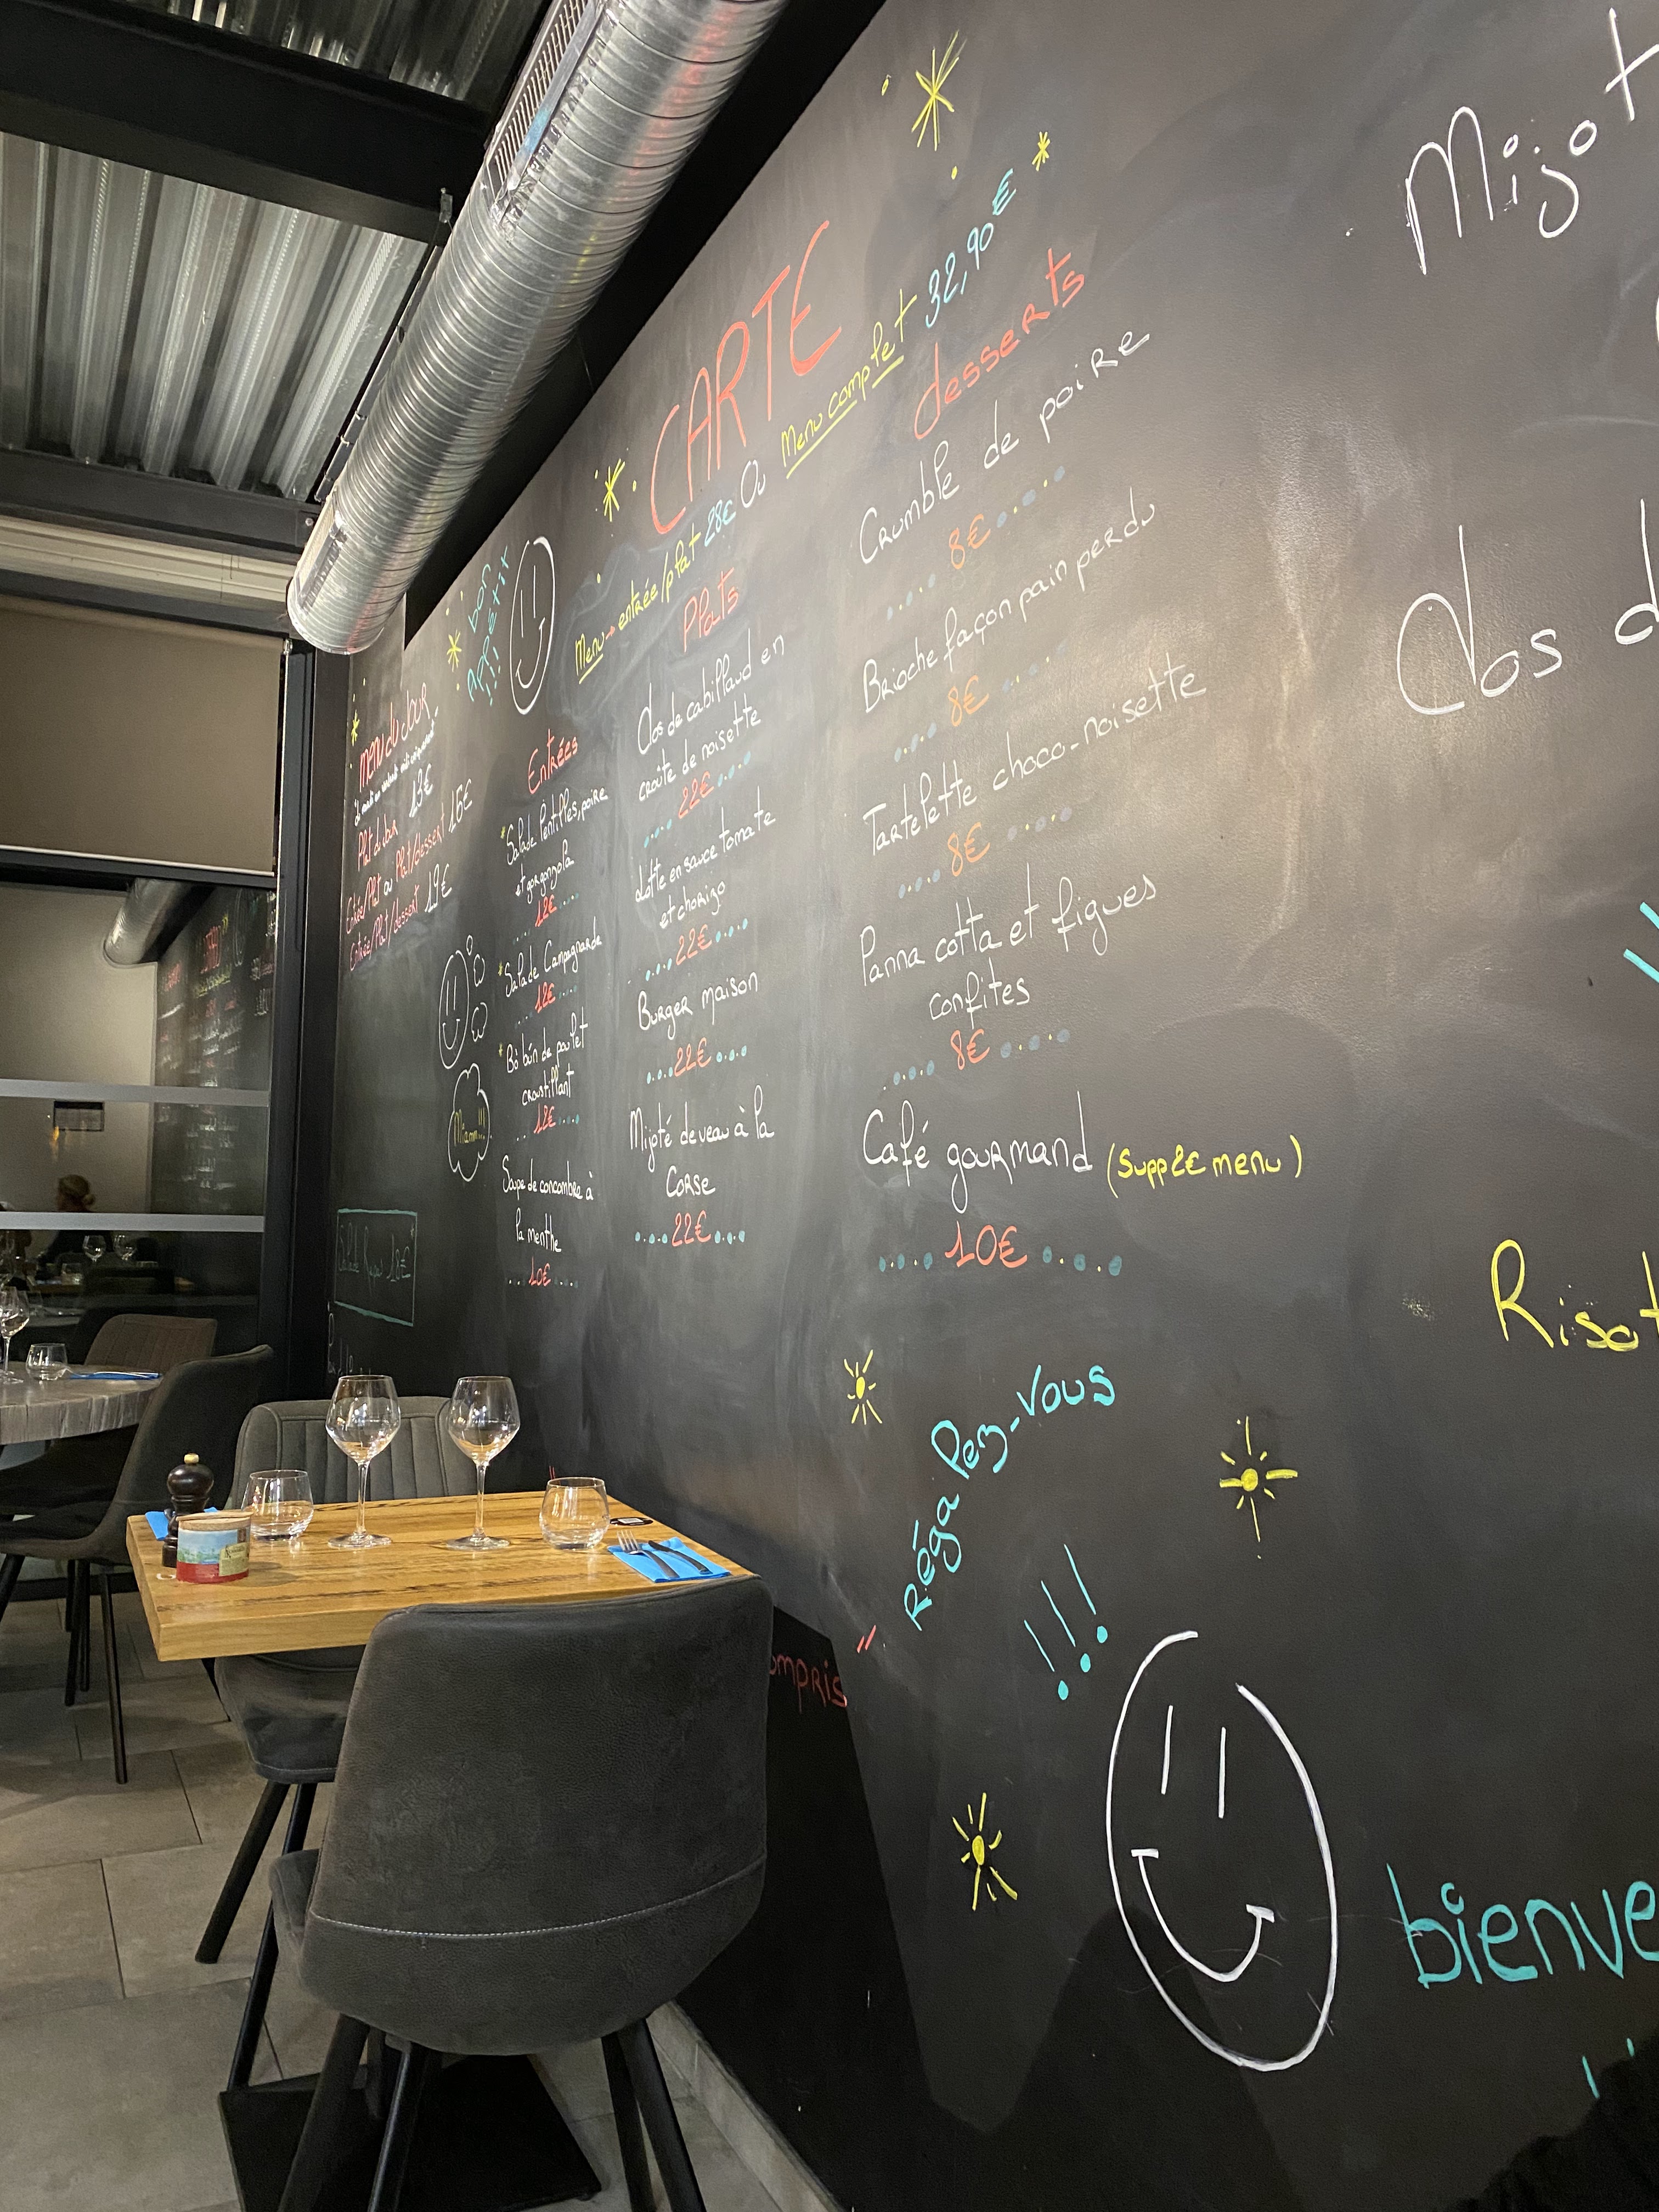 bon
APPÉTIT
!!!
MENU du JOUR
Plat du jour 13€
Entrée/Plat ou Plat/dessert 15€
Entrée/Plat/dessert 19€
Miam!!!
CARTE
Menu → entrée/plat 28€ Ou Menu complet 32,90€
Entrées
* Salade lentilles, poire
et gorgonzola
12€
* Salade Campagnarde
12€
* Bò bún de poulet
croustillant
12€
Soupe de concombre à
la menthe
10€
Plats
Dos de cabillaud en
croûte de noisette
22€
Lotte en sauce tomate
et chorizo
22€
Burger maison
22€
Mijoté de veau à la
Corse
22€
desserts
Crumble de poire
8€
Brioche façon pain perdu
8€
Tartelette choco-noisette
8€
Panna cotta et figues
confites
8€
Café gourmand (Supp 2€ menu)
10€
Régalez-vous
!!!
ompris
Mijot
Dos d
Risot
bienve